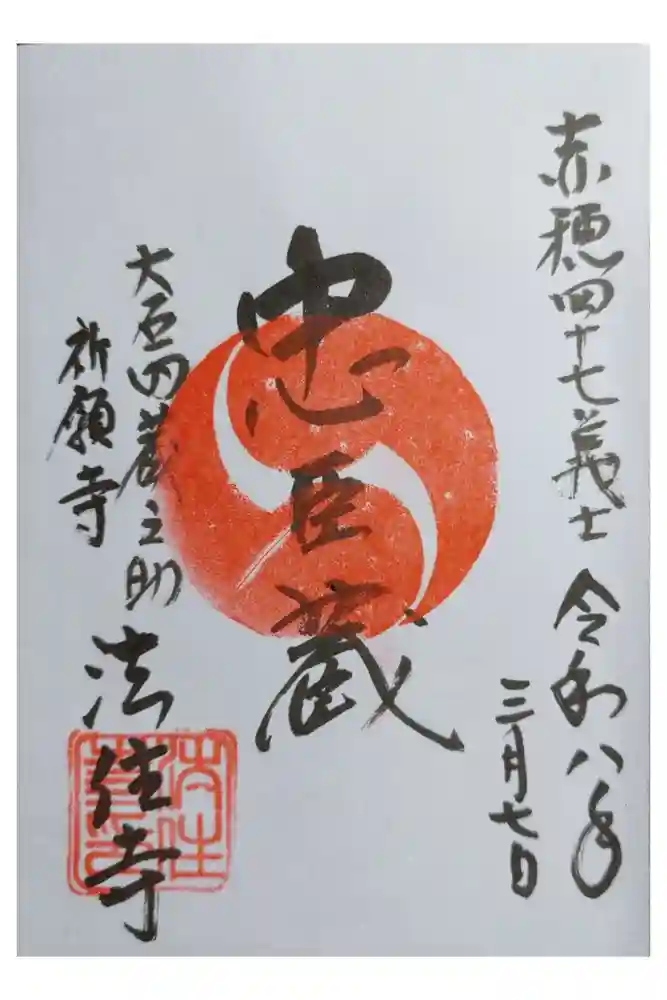 赤穂四十七義士
令和八年
三月七日
忠臣蔵
大石内蔵之助
祈願寺
法住寺